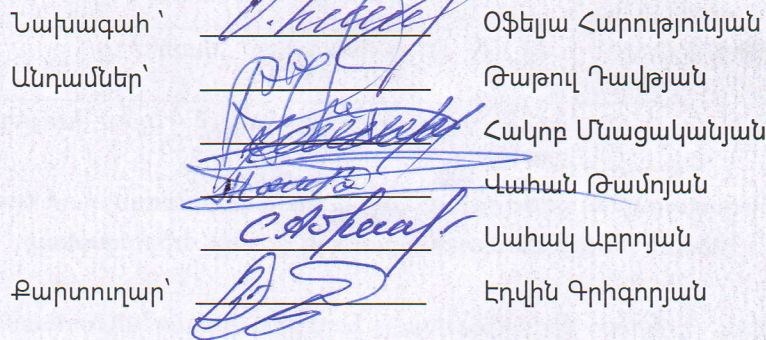 Նախագահ ՝ Օֆելյա Հարությունյան
Անդամներ՝ Թաթուլ Դավթյան
Հակոբ Մնացականյան
Վահան Թամոյան
Սահակ Աբրոյան
Քարտուղար՝ Էդվին Գրիգորյան